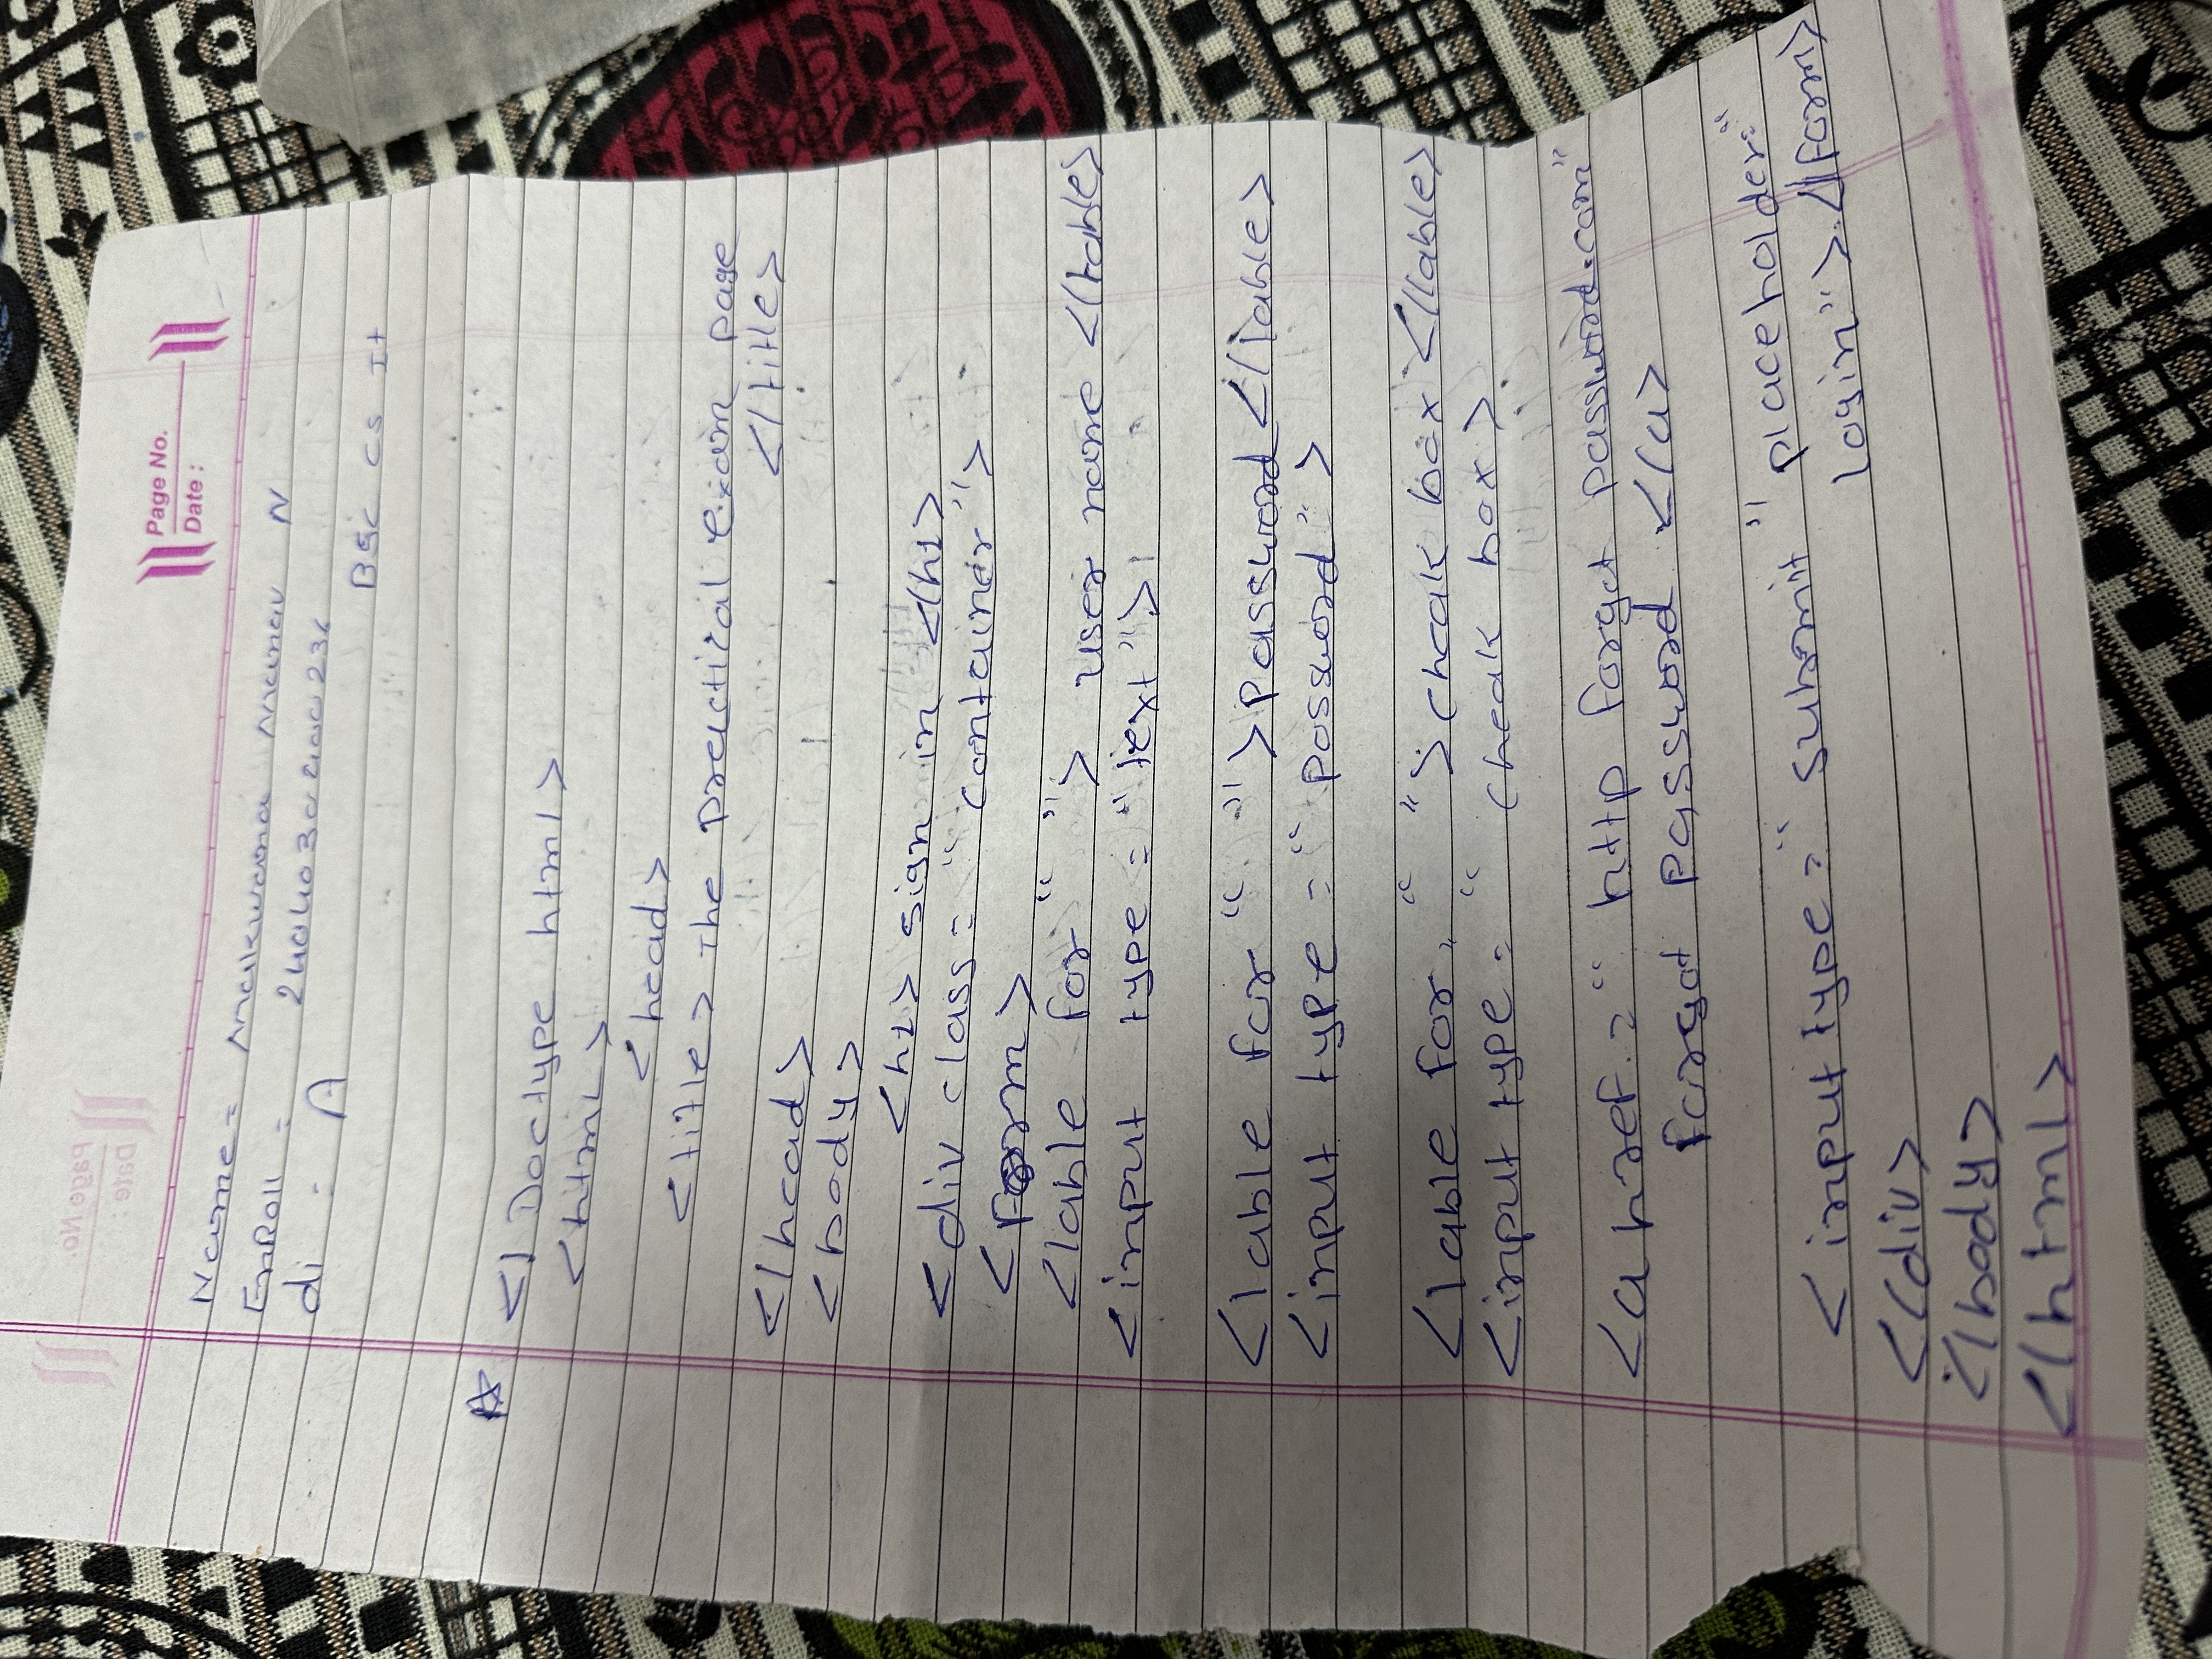 Page No.
Date :
Name = Makwana Manav N
EnRoll =
di : A
BSC CS It
<! Doctype html>
<html>
<head>
<title> The practical exam page
</title>
</head>
<body>
<h1> sign in </h1>
<div class = "container">
<form>
<lable for " "> user name </lable>
<input type = "text">
<lable for " "> Password </lable>
<input type = "password">
<lable for, " "> cheak box </lable>
<input type = " cheak box >
<a href = " http forgot password.com"
forgot password </a>
<input type = "submit" placeholder = "
login"> </form>
</div>
</body>
</html>